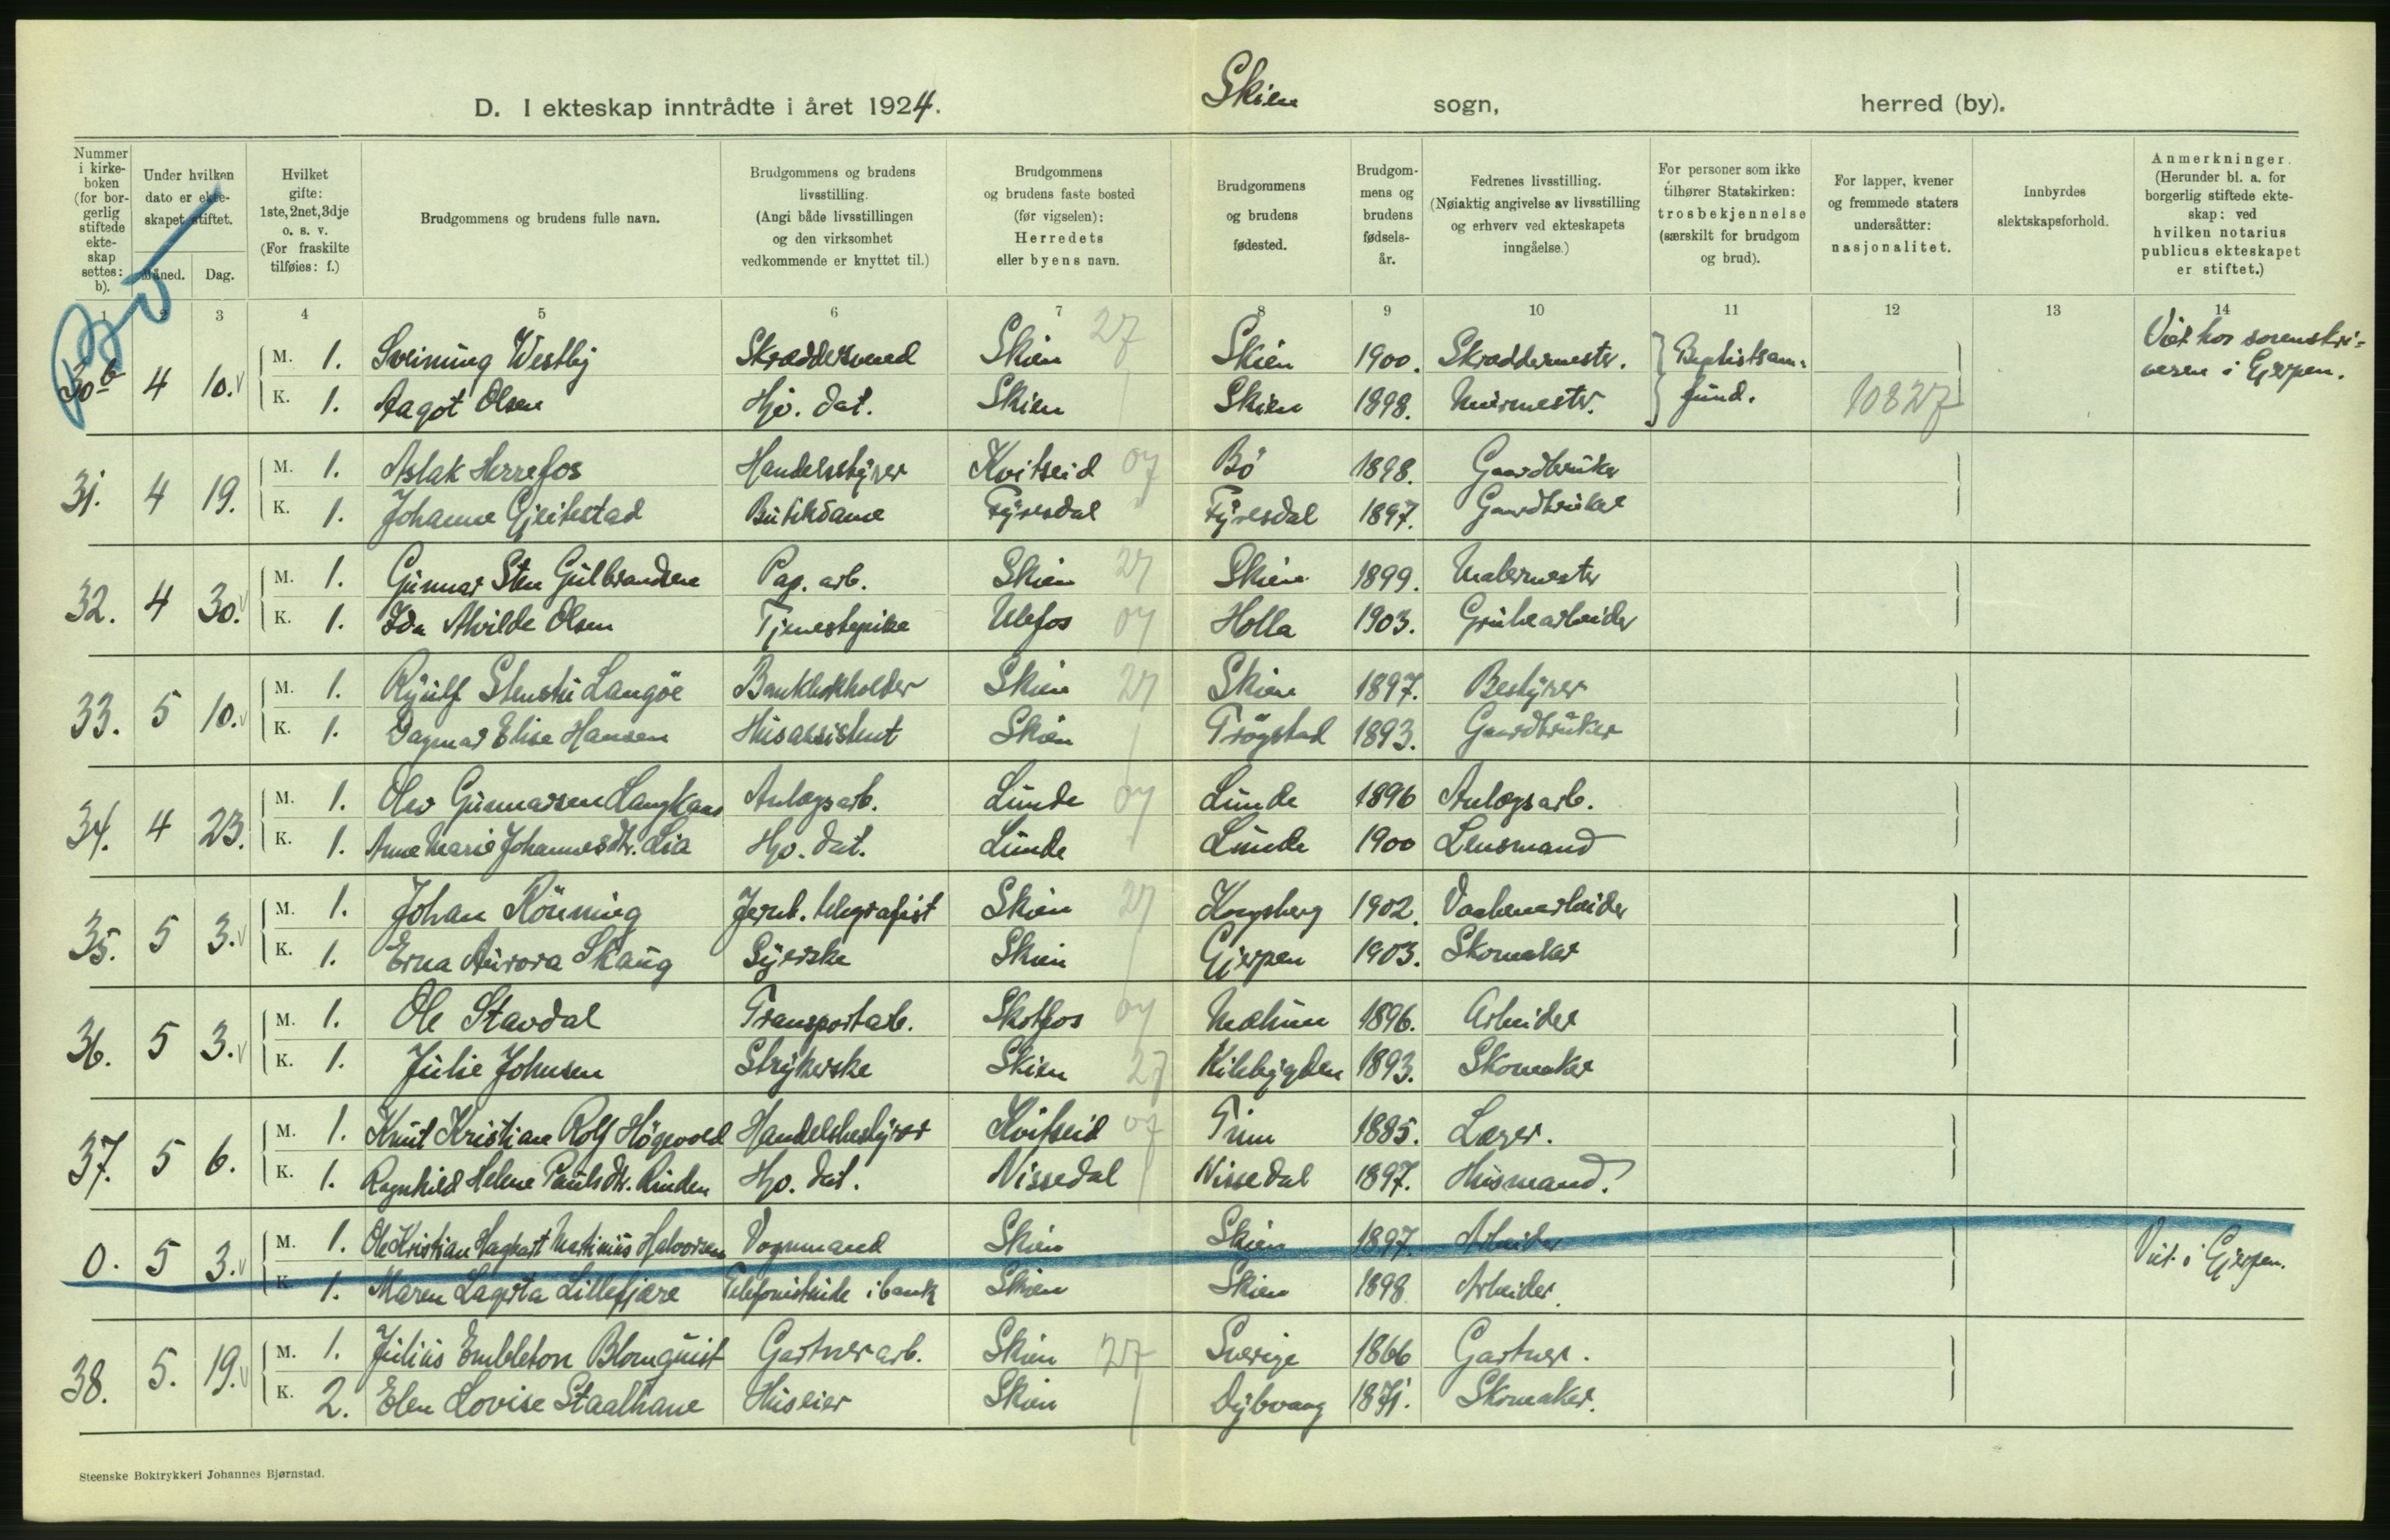 D. I ekteskap inntrådte i året 1924.
Skien sogn, herred (by).
Nummer i kirke-boken (for bor-gerlig stiftede ekte-skap settes: b).
Under hvilken dato er ekte-skapet stiftet.
Måned. Dag.
Hvilket gifte: 1ste, 2net, 3dje o. s. v. (For fraskilte tilføies: f.)
Brudgommens og brudens fulle navn.
Brudgommens og brudens livsstilling. (Angi både livsstillingen og den virksomhet vedkommende er knyttet til.)
Brudgommens og brudens faste bosted (før vigselen): Herredets eller byens navn.
Brudgommens og brudens fødested.
Brudgom-mens og brudens fødsels-år.
Fedrenes livsstilling. (Nøiaktig angivelse av livsstilling og erhverv ved ekteskapets inngåelse.)
For personer som ikke tilhører Statskirken: trosbekjennelse (særskilt for brudgom og brud).
For lapper, kvener og fremmede staters undersåtter: nasjonalitet.
Innbyrdes slektskapsforhold.
Anmerkninger. (Herunder bl. a. for borgerlig stiftede ekte-skap: ved hvilken notarius publicus ekteskapet er stiftet.)
1 2 3 4 5 6 7 8 9 10 11 12 13 14
30 b 4 10. M. 1. Sveinung Westby Skræddersvend Skien 27 Skien 1900. Skræddermester. Baptistsam- Viet hos sorenskri-
K. 1. Aagot Olsen Hjv. dat. Skien Skien 1898. Murmester. fund. 10827 veren i Gjerpen.
31. 4 19. M. 1. Aslak Herrefos Handelsstyrer Kvitseid 07 Bø 1898. Gaardbruker
K. 1. Johanne Gjeitestad Butikdame Fyresdal Fyresdal 1897. Gaardbruker
32. 4 30. M. 1. Gunnar Sten Gulbrandsen Pap. arb. Skien 27 Skien 1899. Malermester
K. 1. Ida Alvilde Olsen Tjenestepike Ulefos 07 Holla 1903. Grubearbeider
33. 5 10. M. 1. Ryulf Stenstu Langöe Bankbokholder Skien 27 Skien 1897. Bestyrer
K. 1. Dagmar Elise Hansen Husassistent Skien Trögstad 1893. Gaardbruker
34. 4 23. M. 1. Olav Gunnarsen Langkaas Anlægsarb. Lunde 07 Lunde 1896 Anlægsarb.
K. 1. Anne Marie Johannesdtr. Lia Hjv. dat. Lunde Lunde 1900 Lensmand
35. 5 3. M. 1. Johan Rönning Jernb. telegrafist Skien 27 Kongsberg 1902. Vaabenarbeider
K. 1. Erna Aurora Skaug Syerske Skien Gjerpen 1903. Skomaker
36. 5 3. M. 1. Ole Stavdal Transportarb. Skotfos 07 Mælum 1896. Arbeider
K. 1. Julie Johnsen Strykerske Skien 27 Kilebygden 1893. Skomaker
37. 5 6. M. 1. Knut Kristian Rolf Högevold Handelsbestyrer Kvitseid 07 Tinn 1885. Lærer.
K. 1. Ragnhild Helene Paulsdtr. Rinden Hjv. dat. Nissedal Nissedal 1897. Husmand.
0. 5 3. M. 1. Ole Kristian Hagbart Martinius Halvorsen Vognmand Skien Skien 1897. Arbeider Viet i Gjerpen.
K. 1. Maren Lagerta Lillefjære Telefonistinde i bank Skien Skien 1898 Arbeider.
38. 5. 19. M. 1. Julius Embleton Blomquist Gartnerarb. Skien 27 Sverige 1866 Gartner.
K. 2. Elen Lovise Staalhane Huseier Skien Dybvaag 1871. Skomaker.
Steenske Boktrykkeri Johannes Bjørnstad.